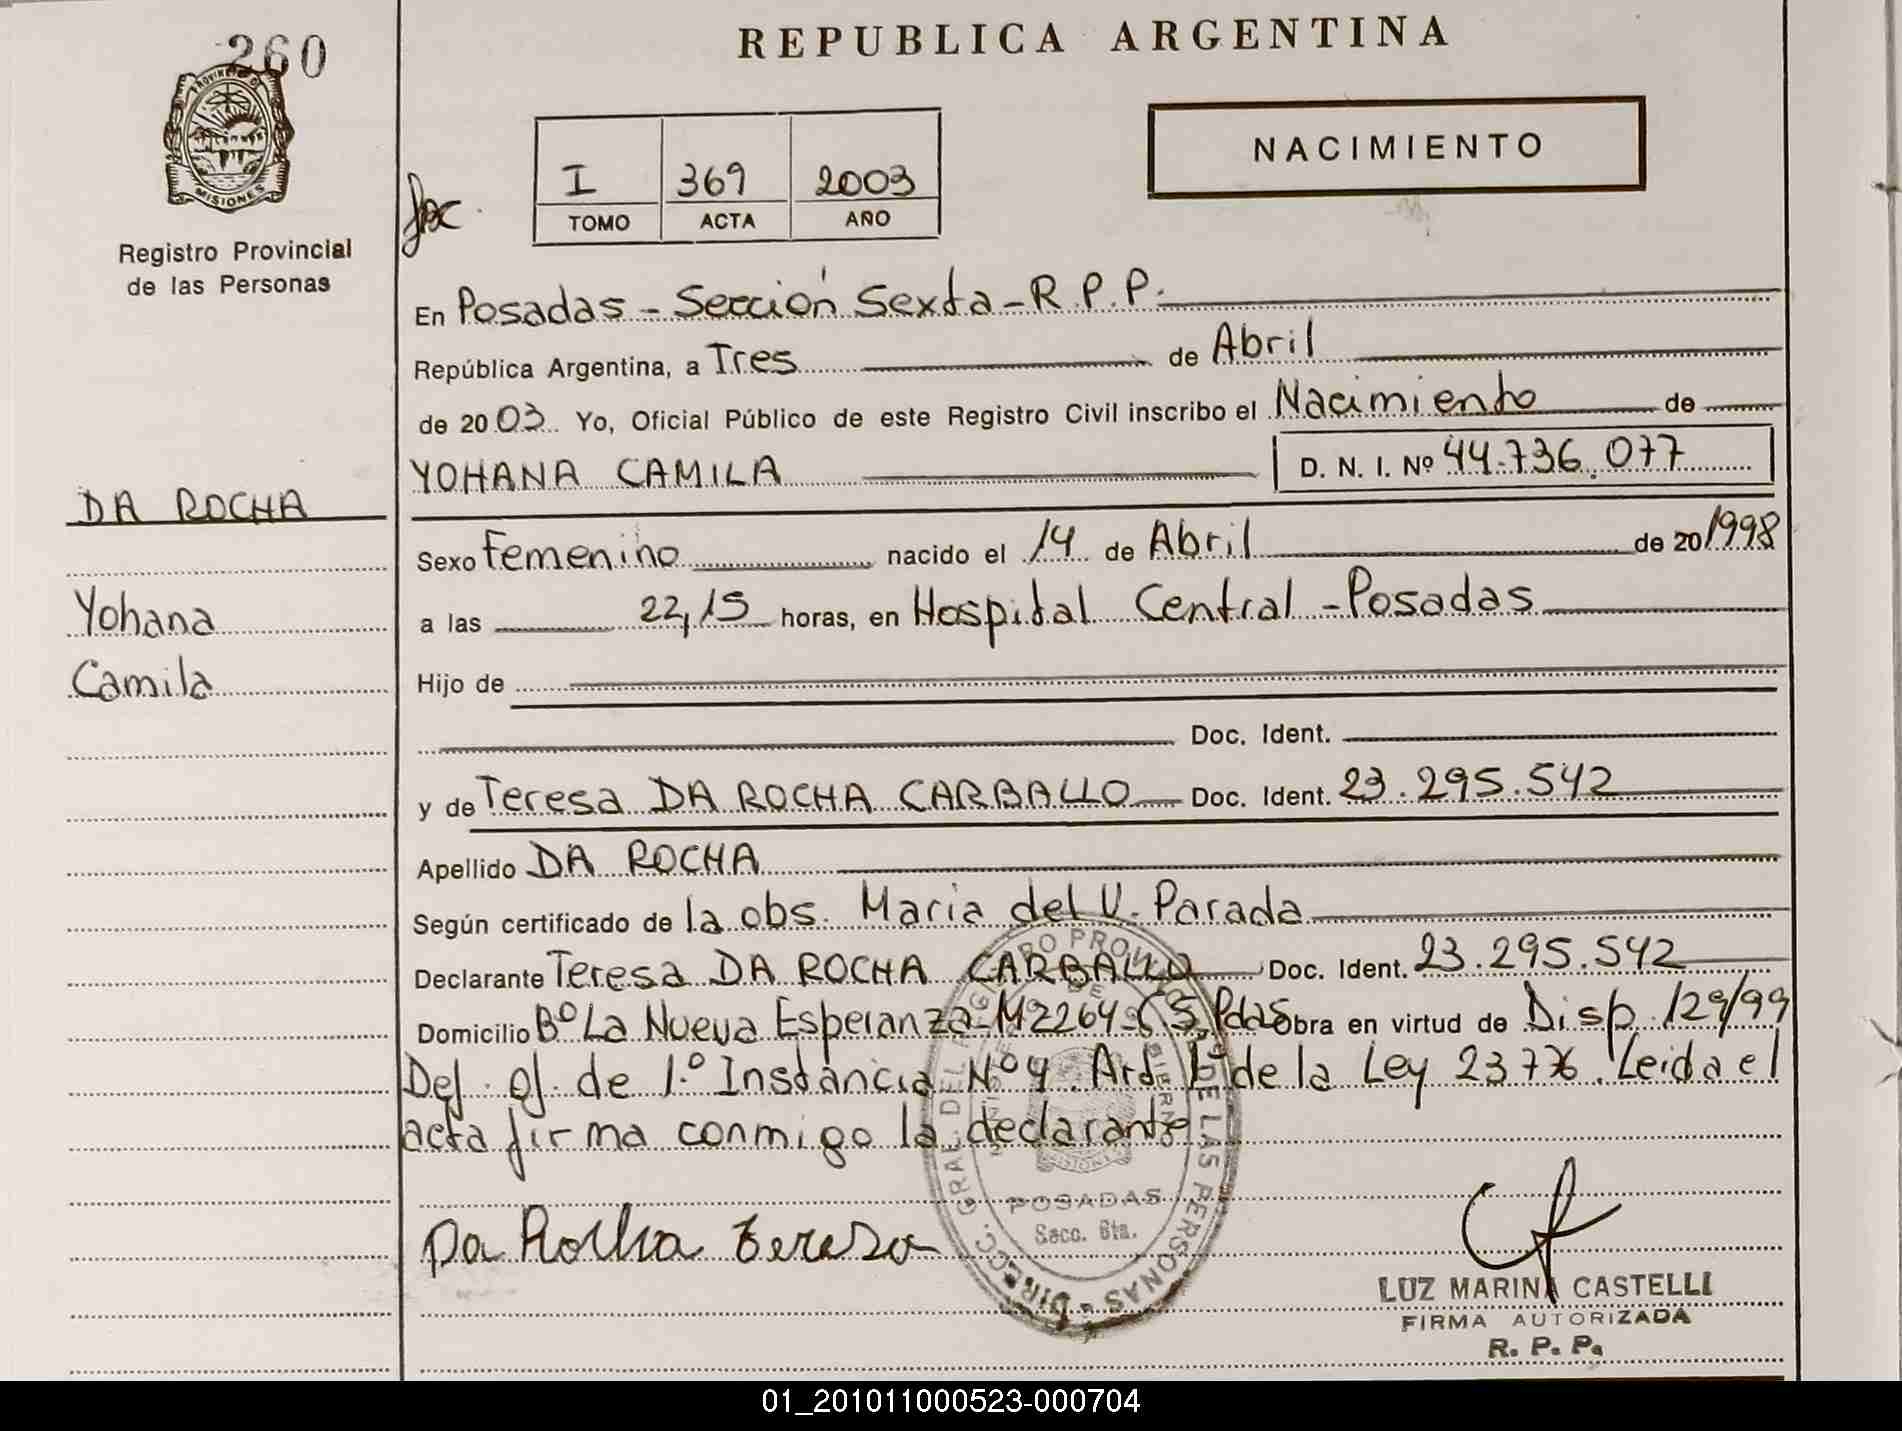 260
PROVINCIA DE
MISIONES
Registro Provincial
de las Personas
DA ROCHA
Yohana
Camila
REPUBLICA ARGENTINA
I 369 2003
TOMO ACTA AÑO
NACIMIENTO
En Posadas - Sección Sexta - R.P.P.
República Argentina, a Tres de Abril
de 2003 Yo, Oficial Público de este Registro Civil inscribo el Nacimiento de
YOHANA CAMILA D. N. I. Nº 44.736.077
Sexo Femenino nacido el 14 de Abril de 20 1998
a las 22,15 horas, en Hospital Central - Posadas
Hijo de
Doc. Ident.
y de Teresa DA ROCHA CARBALLO Doc. Ident. 23.295.542
Apellido DA ROCHA
Según certificado de la obs. Maria del V. Parada
Declarante Teresa DA ROCHA CARBALLO Doc. Ident. 23.295.542
Domicilio Bº La Nueva Esperanza - M2264 - C5, Pdas Obra en virtud de Disp. 129/99
Def. Of. de 1.º Instancia Nº 4. Art. 1º de la Ley 23776. Leida el
acta firma conmigo la declarante
Da Rocha Teresa
DIRECC. GRAL DEL REGISTRO PROVINCIAL DE LAS PERSONAS
POSADAS
Secc. 6ta.
LUZ MARINA CASTELLI
FIRMA AUTORIZADA
R. P. P.
01_201011000523-000704